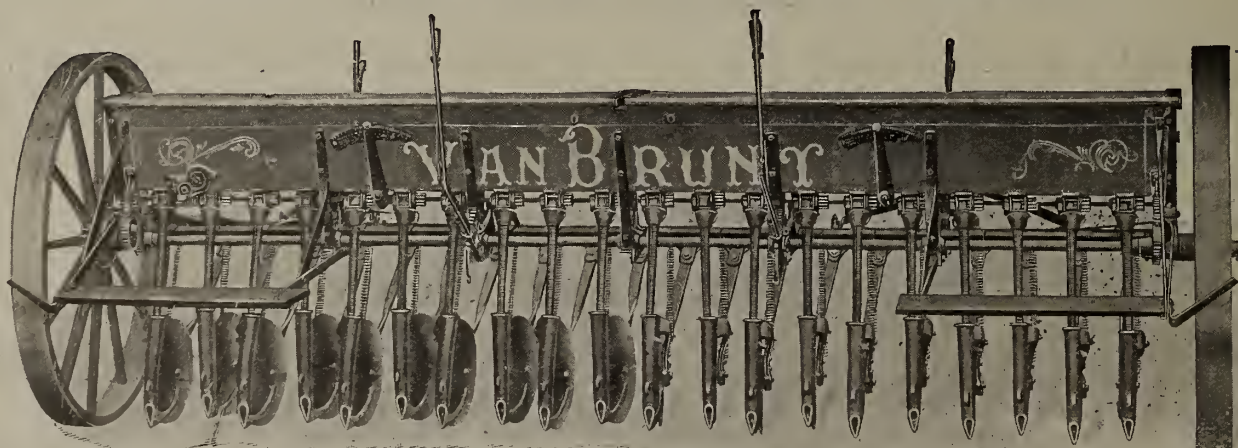 VAN BRUNT